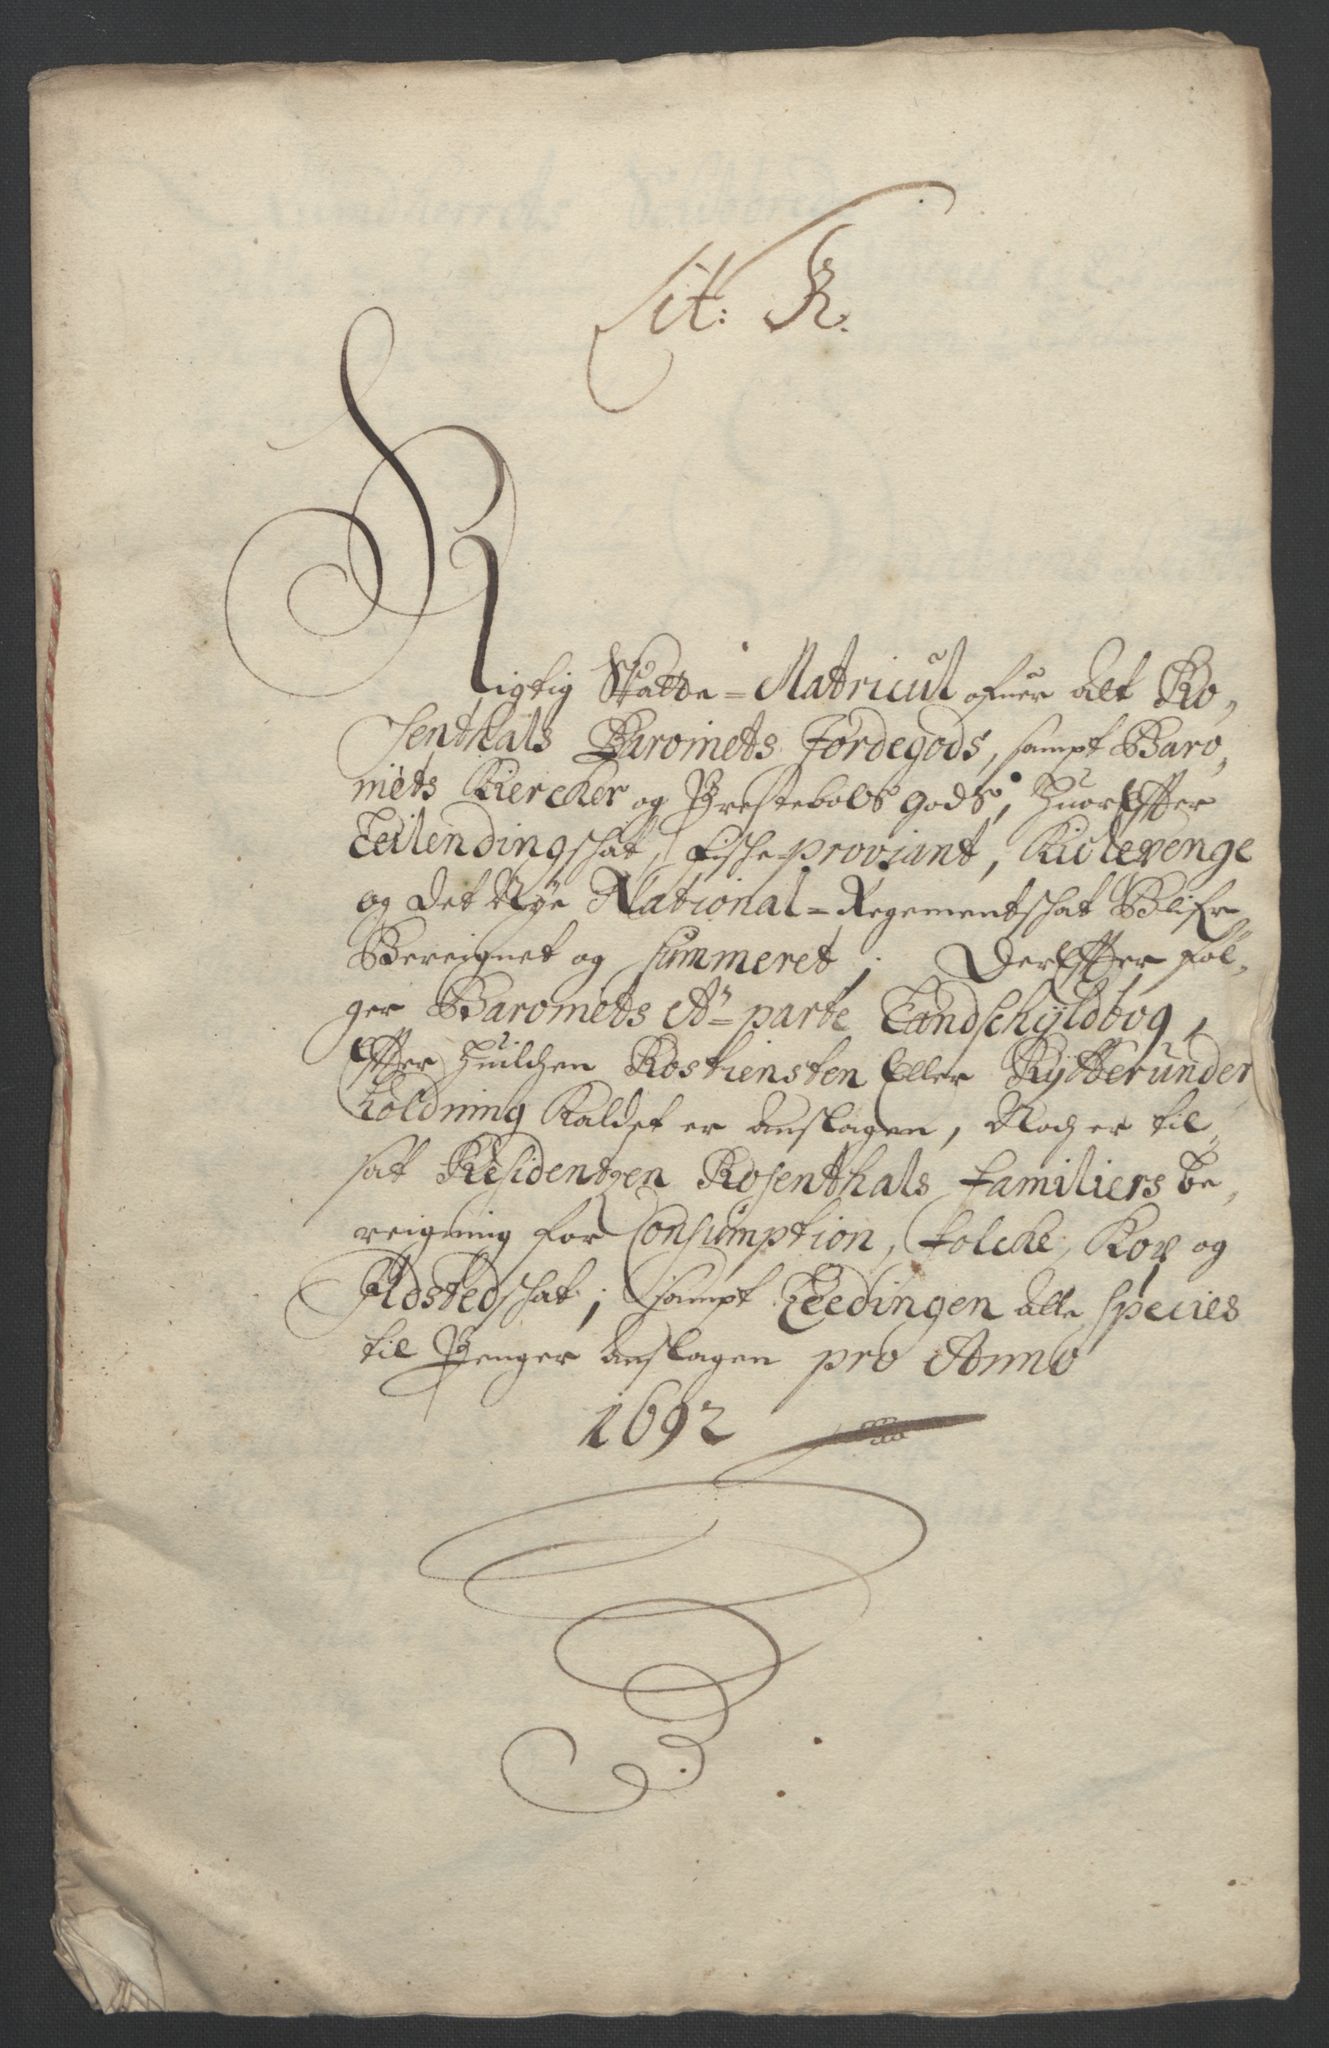 Lit: R.
Rigtig Skatte-Matricul ofuer alt Ro-
senthals Baroniets Jordegods, sampt Baro-
niets Kiercker og Prestebols gods, Huorefter
Leilendingschat, Fische-proviant, Kiolepenge
og det Nye National-Regementschat Blifr
Bereignet og summeret; Derefter föl-
ger Baroniets A-parte Landschyldbog,
Efter Huilchen Rostiensten Eller Rytterunder
holdning Kaldet er anslagen, Noch er til-
sat Residentzen Rosenthals Familiers be-
reigning for Consumption, Folche, Kop og
Ildstedschat; sampt Leedingen alle Species
til Penger anslagen pro Anno
1692